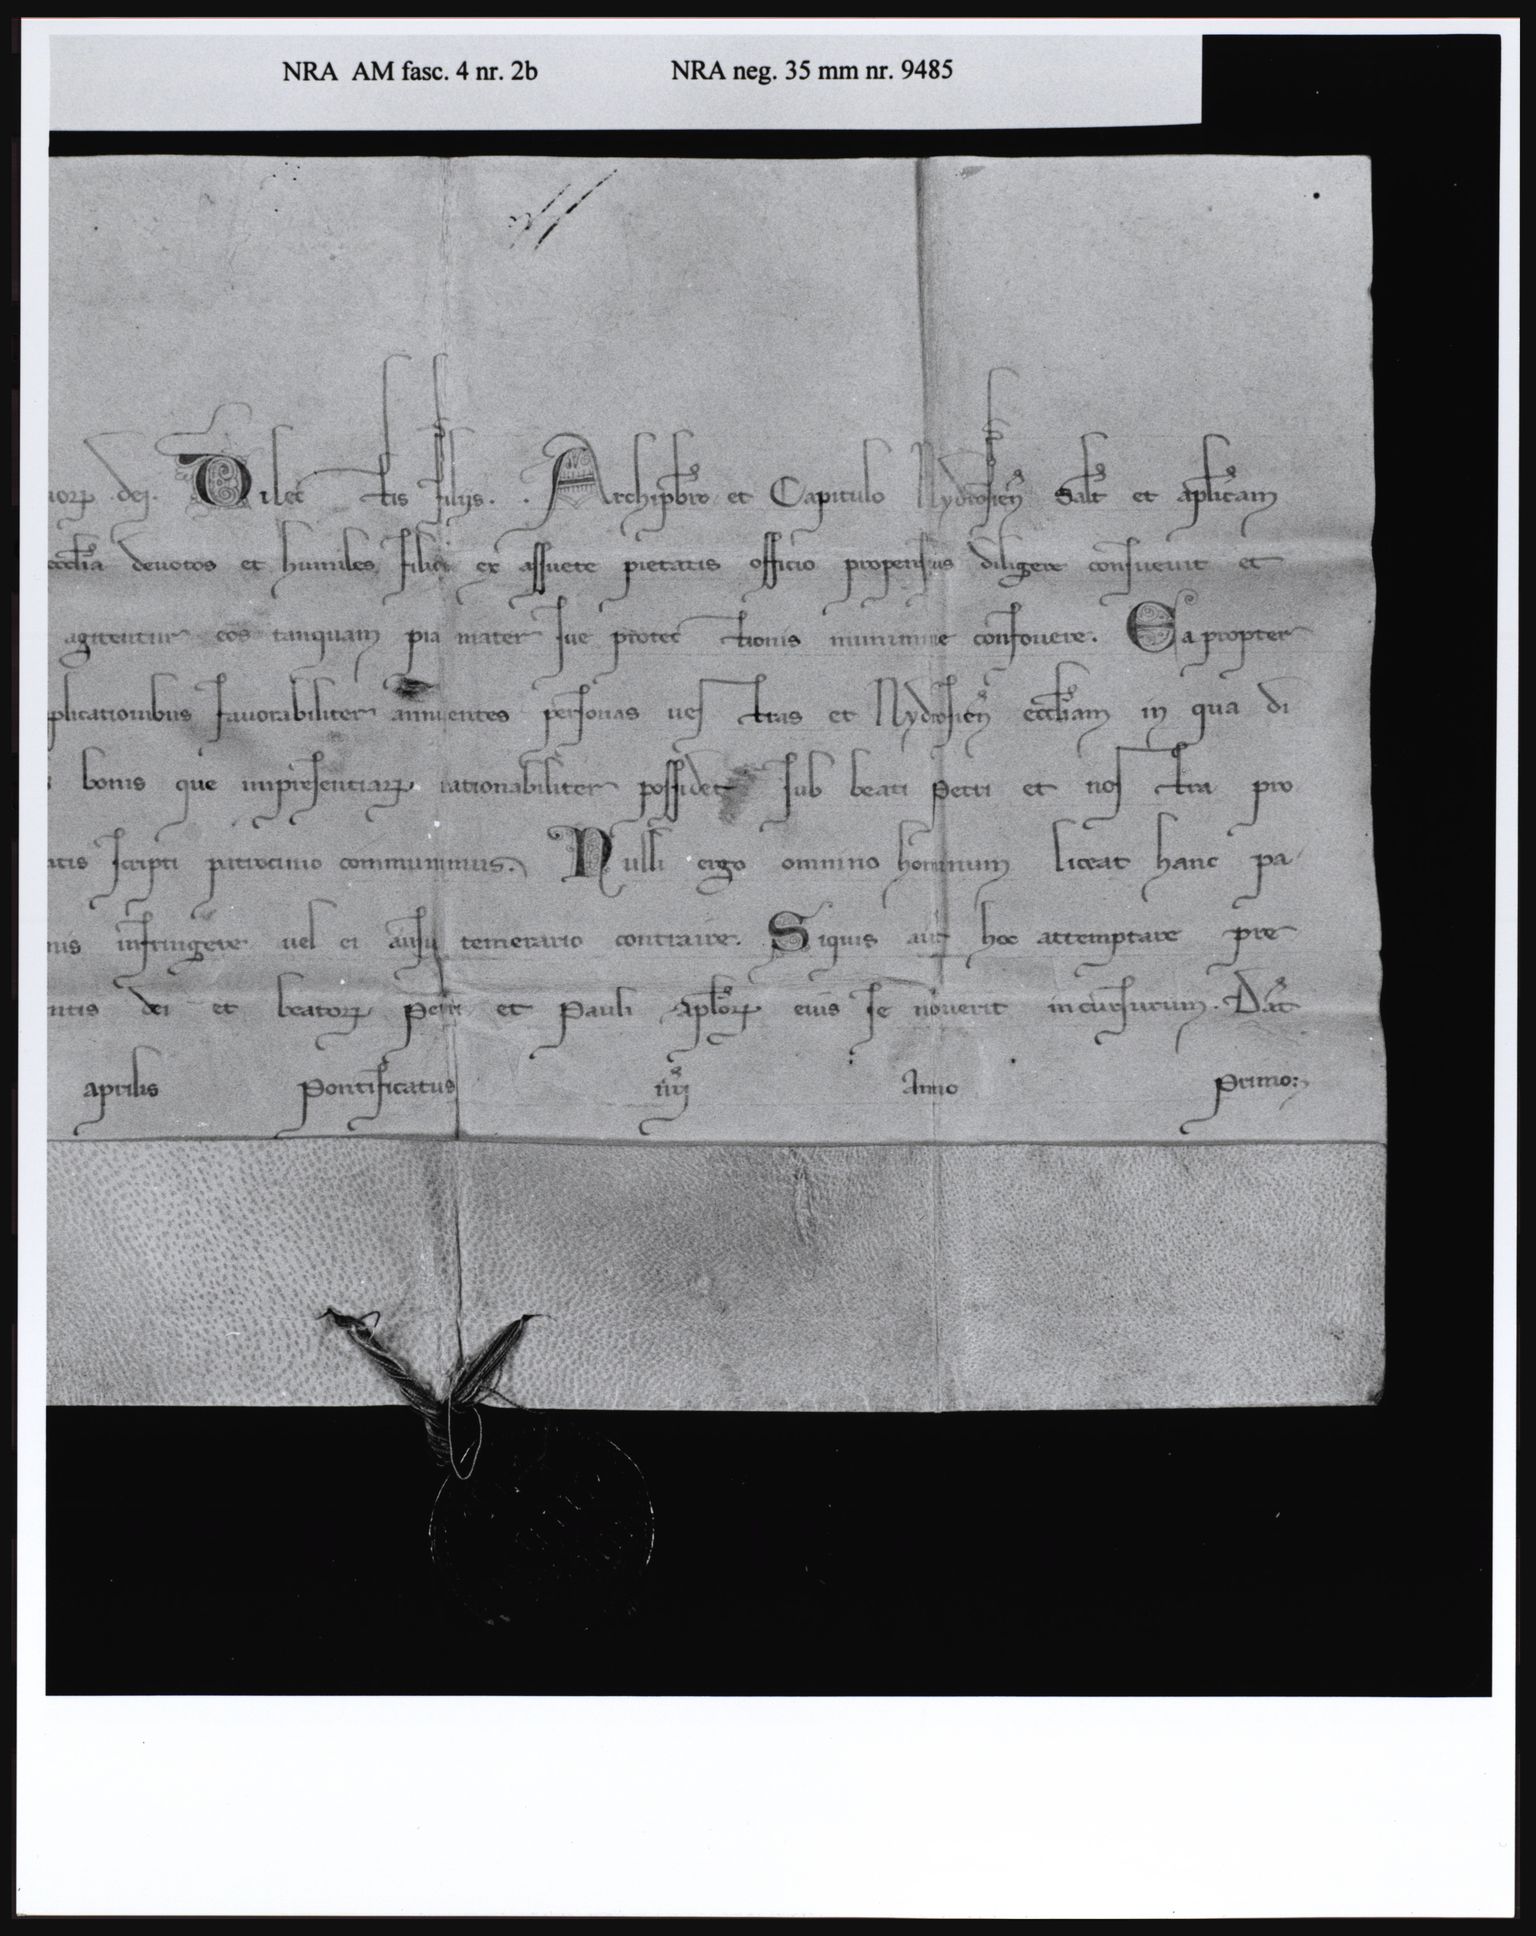 NRA AM fasc. 4 nr. 2b NRA neg. 35 mm nr. 9485
uorꝝ dei. Dilectis filijs. . Archipbro et Capitulo Nydrosien̄ Salt et aplicam
eccl̄ia deuotos et humiles filios ex assuete pietatis officio propensius diligere consueuit et
agitentur eos tanquam pia mater sue protectionis munimine confouere. Eapropter
plicationibus fauorabiliter annuentes personas uestras et Nydrosien̄ eccl̄iam in qua di
s bonis que impresentiarꝝ rationabiliter possidet sub beati Petri et nostra pro
atis scripti patrocinio communimus. Nulli ergo omnino hominum liceat hanc pa
nis infringere uel ei ausu temerario contraire. Siquis aut̄ hoc attemptare pre
ntis dei et beatorꝝ Petri et Pauli aplorꝝ eius se nouerit incursurum. Dat̄
aprilis Pontificatus nr̄i Anno Primo: